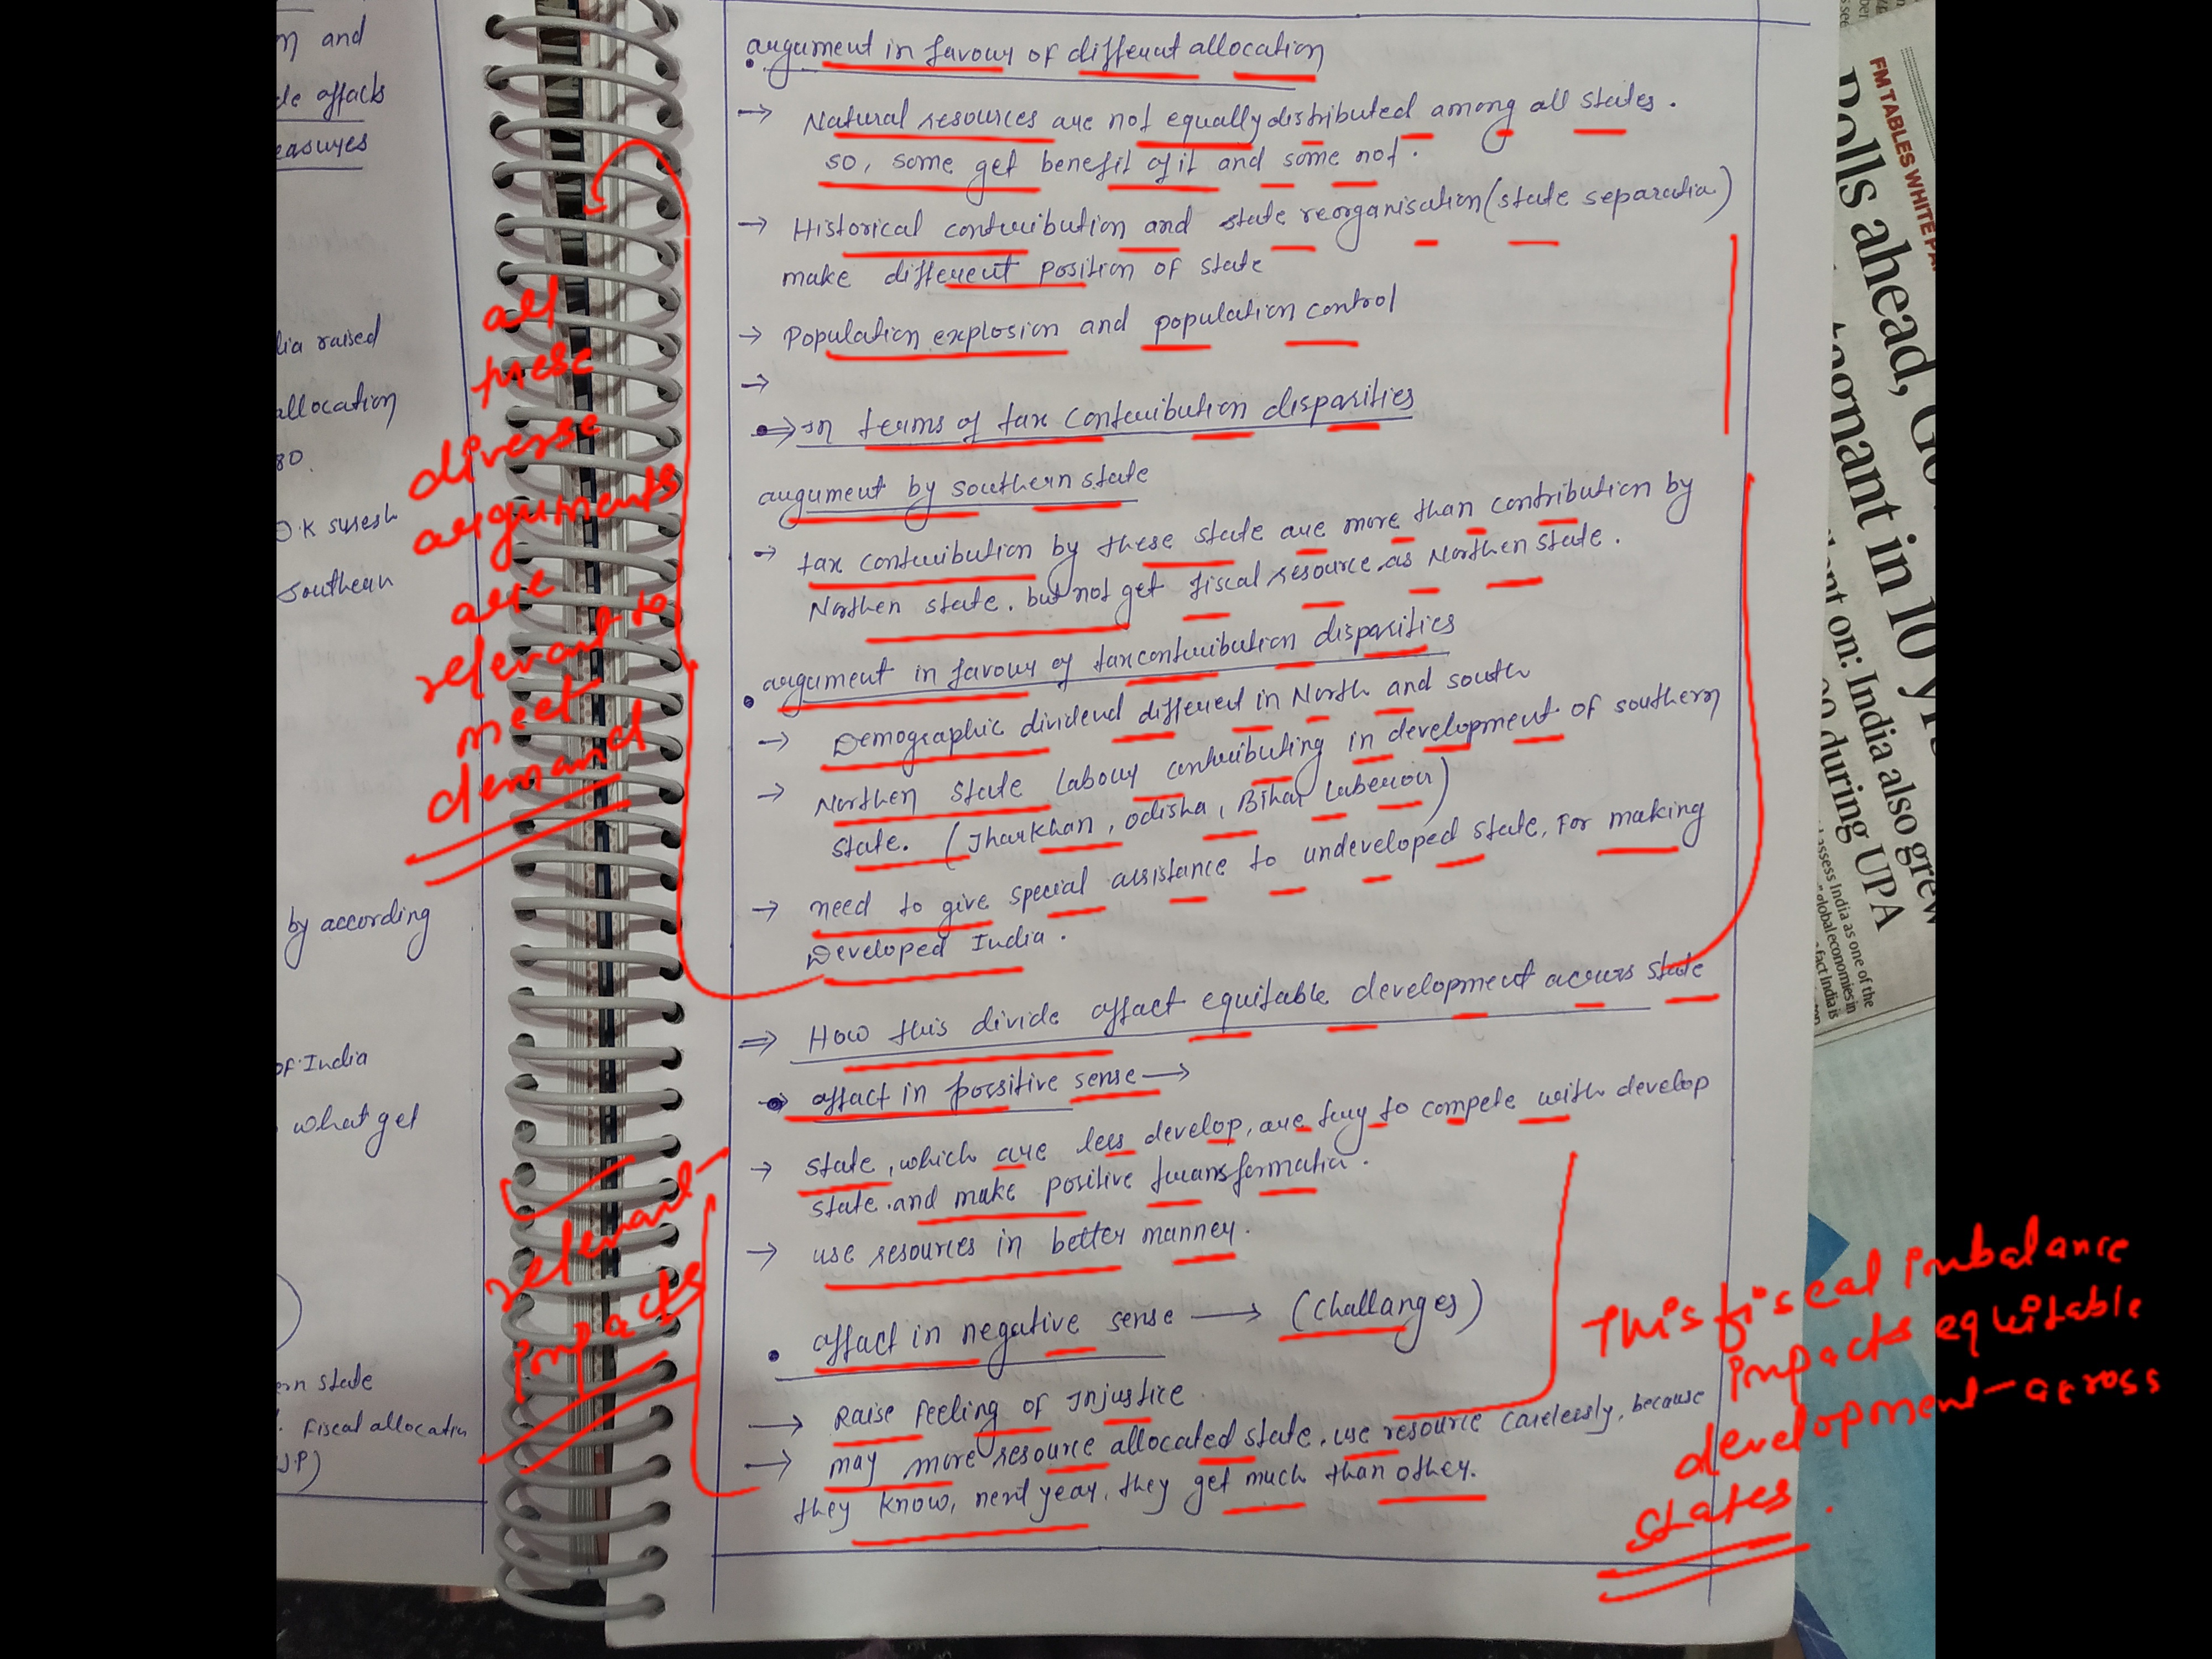 argument in favour of different allocation
→ Natural resources are not equally distributed among all states.
so, some get benefit of it and some not.
→ Historical contribution and state reorganisation (state separatia)
make different position of state
→ Population explosion and population control
→
⇒ In terms of tax contribution disparities
argument by southern state
→ tax contribution by these state are more than contribution by
Northen state. but not get fiscal resource as Northen state.
• argument in favour of tax contribution disparities
→ Demographic dividend different in North and south
→ Northen state Labour contributing in development of southern
state. (Jharkhan, odisha, Bihar Laberour)
→ need to give special assistance to undeveloped state, For making
Developed India.
⇒ How this divide affact equitable development across state
affact in possitive sense →
→ state, which are less develop, are try to compete with develop
state. and make positive transformatio.
→ use resources in better manner.
• affact in negative sense → (challanges)
→ Raise feeling of Injustice.
→ may more resource allocated state. use resource carelessly, because
they know, next year, they get much than other.
all
these
diverse
arguments
are
relevant to
meet
demand
relevant
impacts
This fiscal imbalance
impacts equitable
development across
states.
and
affacts
easures
dia raised
allocation
80.
D.K suresh
southern
by according
of India
what get
ern state
Fiscal allocatin
U.P)
FM TABLES WHITE PA
Polls ahead, G
in 10 y
on: India also grew
during UPA
assess India as one of the
global economies in
fact India is